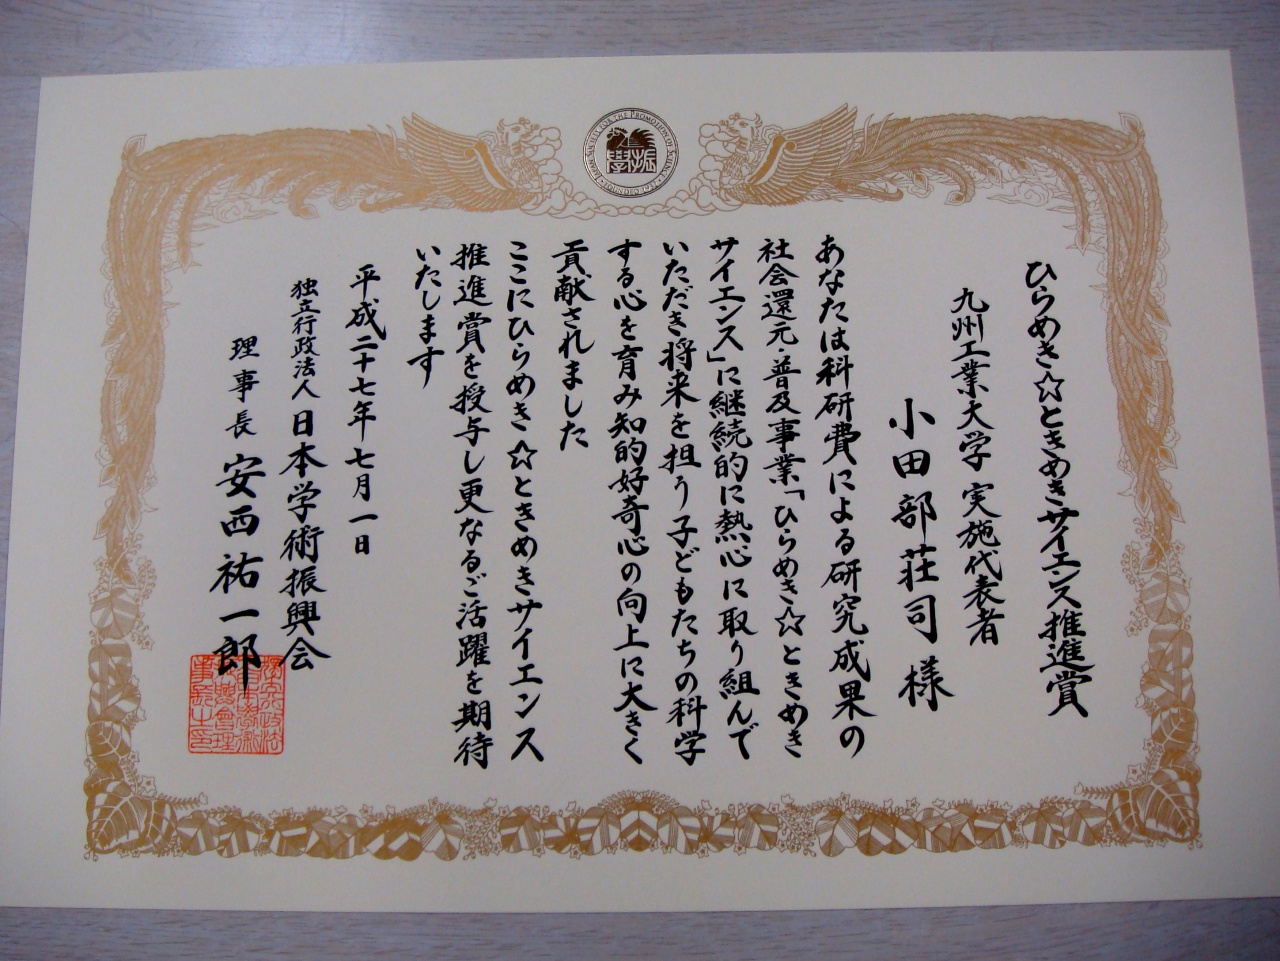 JAPAN SOCIETY FOR THE PROMOTION OF SCIENCE
FOUNDED 1932
ひらめき☆ときめきサイエンス推進賞
九州工業大学 実施代表者
小田部荘司様
あなたは科研費による研究成果の
社会還元・普及事業「ひらめき☆ときめき
サイエンス」に継続的に熱心に取り組んで
いただき将来を担う子どもたちの科学
する心を育み知的好奇心の向上に大きく
貢献されました
ここにひらめき☆ときめきサイエンス
推進賞を授与し更なるご活躍を期待
いたします
平成二十七年七月一日
独立行政法人 日本学術振興会
理事長 安西祐一郎